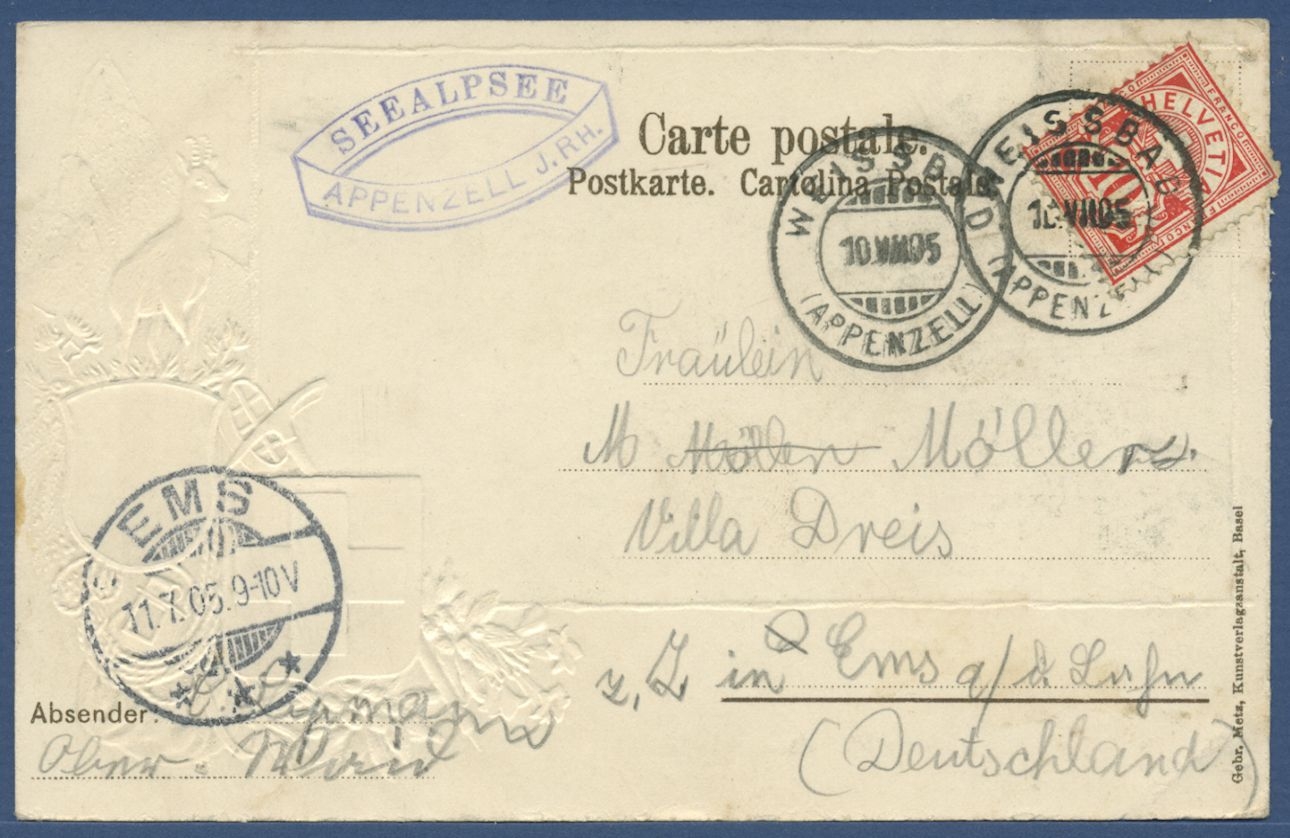 SEEALPSEE
APPENZELL J. RH.
Carte postale.
Postkarte. Cartolina Postale.
WEISSBAD
10.VII.05
(APPENZELL)
WEISSBAD
10.VII.05
(APPENZELL)
HELVETIA
FRANCO
FRANCO
FRANCO
10
Fräulein
M Möller Möllers.
Villa Dreis
z. Z in Ems a/d Lahn
(Deutschland)
EMS
11.7.05.9-10V
Absender:
Ober-Waid
Gebr. Metz, Kunstverlagsanstalt, Basel